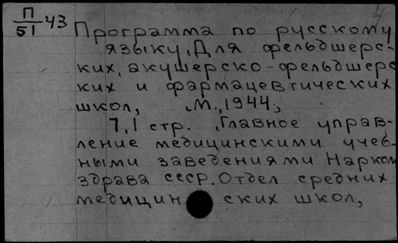 П
51 43
Программа по русскому
языку, Для фельдшерс-
ких, акушерско-фельдшерс
ких и фармацевтических
школ, М., 1944,
7,1 стр. Главное управ-
ление медицинскими учеб-
ными заведениями Нарком
здрава СССР. Отдел средних
медицин ских школ,